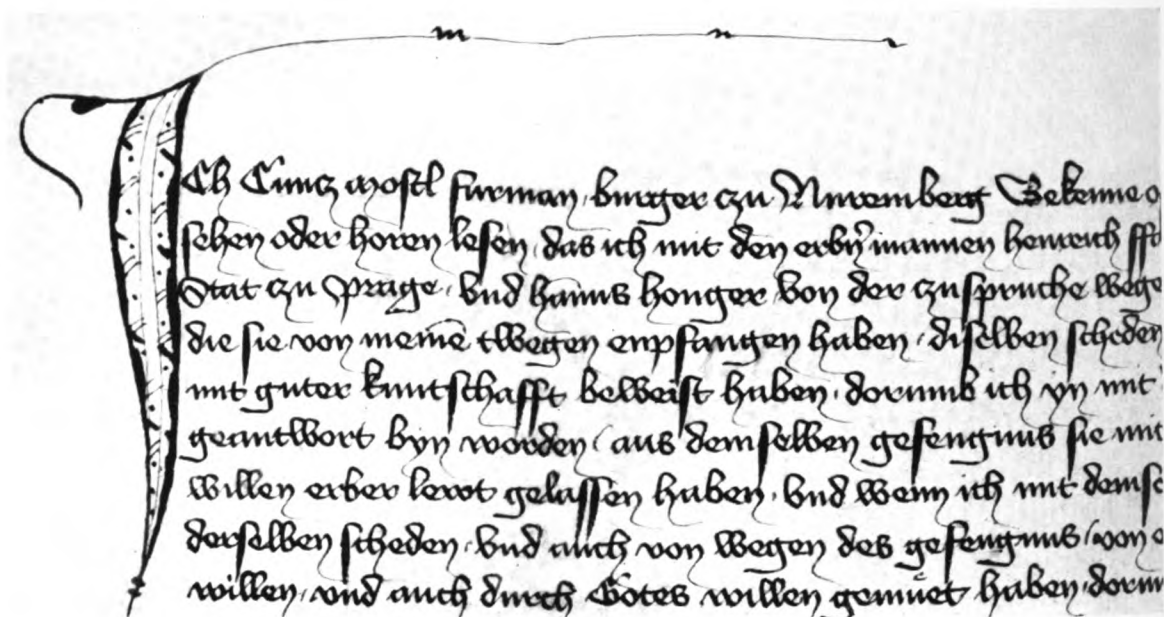 Ich Cuncz mostl furman, burger czu Nuremberg Bekenne o
sehen oder horen lesen, das ich mit den erbn̄ mannen heinreich ffr
Stat czu Prage, vnd hanns honger von der czuspruche wege
die sie von meinē twegen enpfangen haben, diselben scheden
mit guter kuntschafft beweist haben, dorumb ich yn mit
geantwort byn worden, aus demselben gefengnus sie mic
willen erber lewt gelassen haben, vnd wenn ich mit demse
derselben scheden, vnd auch von wegen des gefengnus, von
willen, vnd auch durch Gotes willen gemuet haben, dorum